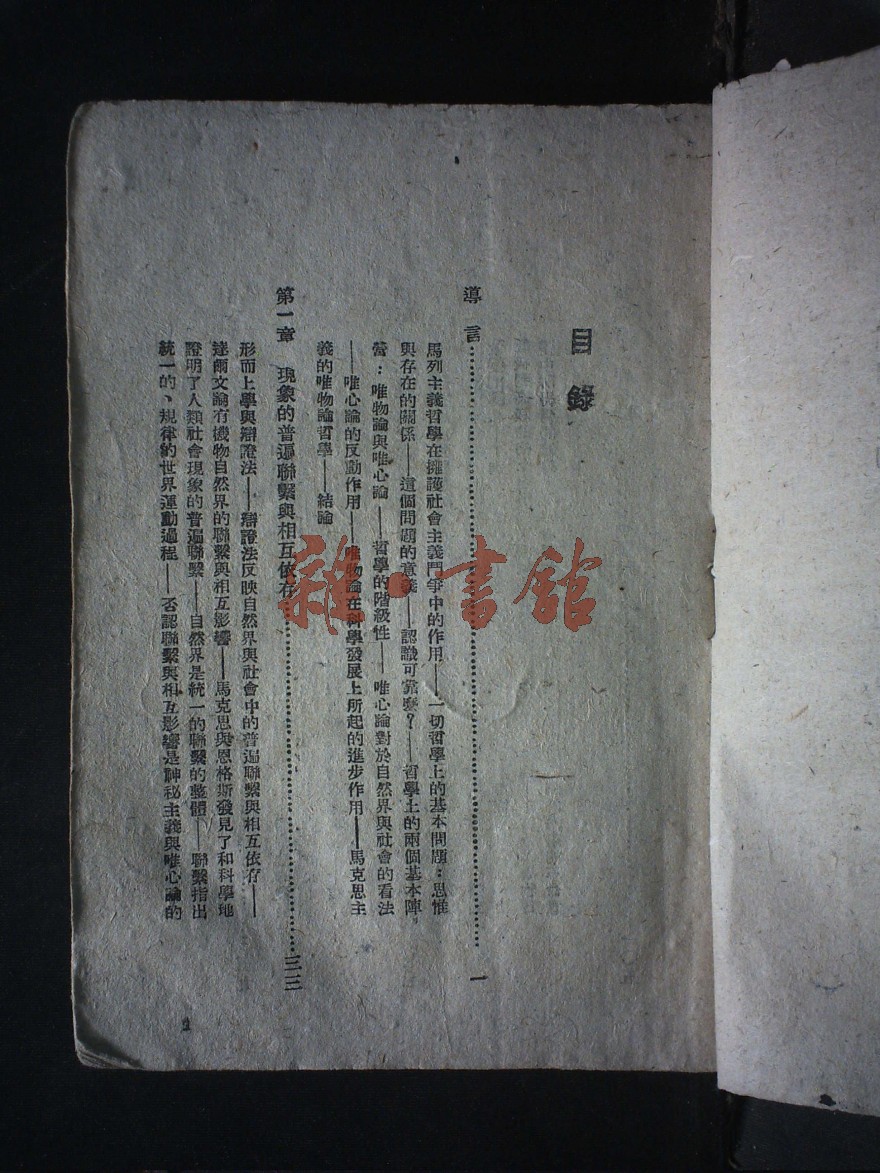 目錄
導言……一
馬列主義哲學在擁護社會主義鬥爭中的作用——一切哲學上的基本問題：思惟
與存在的關係——這個問題的意義——認識可靠麼？——哲學上的兩個基本陣
營：唯物論與唯心論——哲學的階級性——唯心論對於自然界與社會的看法
——唯心論的反動作用——唯物論在科學發展上所起的進步作用——馬克思主
義的唯物論哲學——結論
第一章 現象的普遍聯繫與相互依存……三三
形而上學與辯證法——辯證法反映自然界與社會中的普遍聯繫與相互依存——
達爾文論有機物自然界的聯繫與相互影響——馬克思與恩格斯發見了和科學地
證明了人類社會現象的普遍聯繫——自然界是統一的聯繫的整體——聯繫指出
統一的、規律的世界運動過程——否認聯繫與相互影響是神秘主義與唯心論的
雜·書館